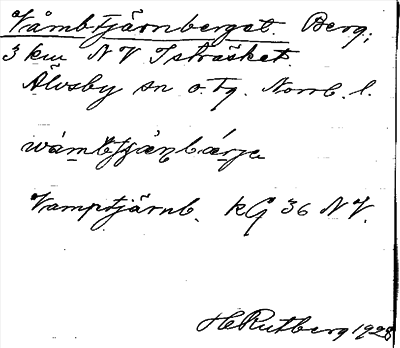 Våmbtjärnberget. Berg,
3 km NV Isträsket.
Älvsby sn o. tg. Norrb. l.
Vamptjärnb. KG 36 NV.
H Rutberg 1928